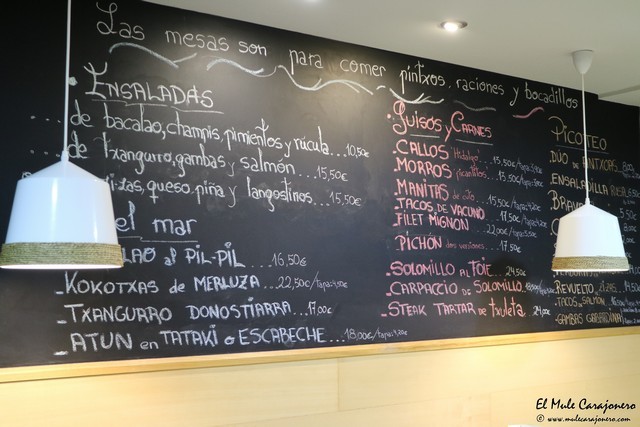 Las mesas son para comer pintxos, raciones y bocadillos
ENSALADAS
... de bacalao, champis, pimientos y rúcula... 10,50€
... de txangurro, gambas y salmón ...... 15,50€
queso, piña y langostinos.. 15,50€
el mar
AL PIL-PIL .... 16,50€
- KOKOTXAS DE MERLUZA ... 22,50€
- TXANGURRO DONOSTIARRA .... 17,00€
- ATUN en TATAKI o ESCABECHE ... 18,00€
Guisos y CARNES
- CALLOS ... 15,50€
- MORROS picantillos ... 15,50€
- MANITAS ... 15,50€
- TACOS DE VACUNO ... 17,50€
- FILET MIGNON ..... 22,00€
- PICHÓN dos versiones ..... 17,50€
- SOLOMILLO AL FOIE ... 24,50€
- CARPACCIO DE SOLOMILLO
- STEAK TARTAR DE txuleta 24,00€
PICOTEO
DÚO DE
ENSALADILLA
REVUELTO
- TACOS SALMÓN
- GAMBAS GABARDINA
El Mule Carajonero
© www.mulecarajonero.com